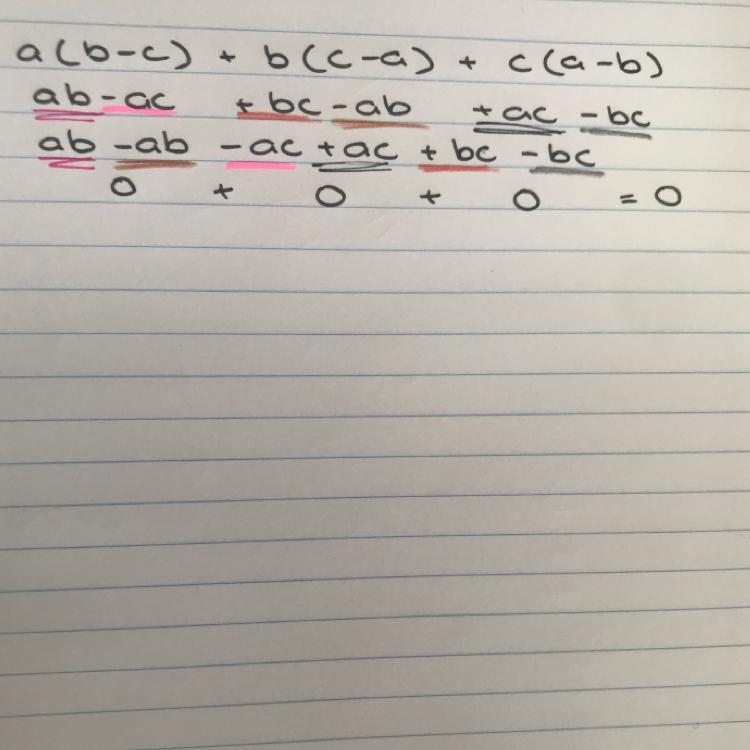 a(b-c) + b(c-a) + c(a-b)
ab-ac +bc-ab +ac -bc
ab -ab -ac +ac + bc -bc
0 + 0 + 0 = 0